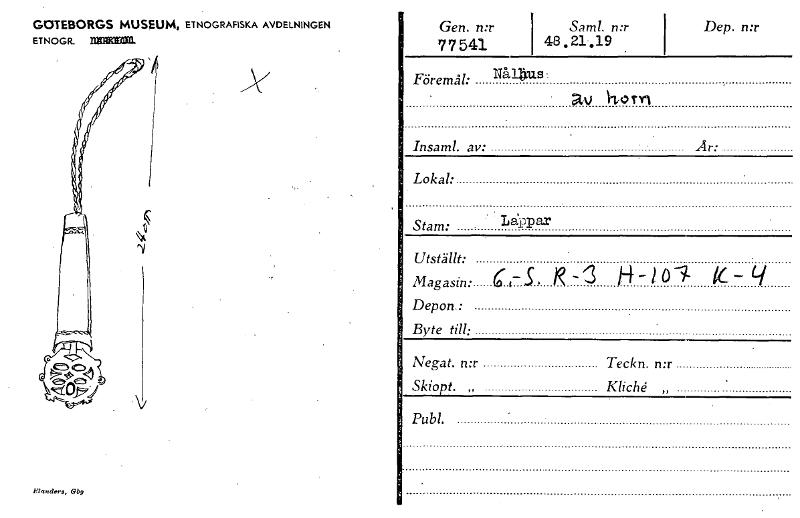 GÖTEBORGS MUSEUM, ETNOGRAFISKA AVDELNINGEN
ETNOGR.
24 cm
Elanders, Gbg
Gen. n:r Saml. n:r Dep. n:r
77541 48.21.19
Föremål: Nålhus
av horn
Insaml. av: År:
Lokal:
Stam: Lappar
Utställt:
Magasin: G.-S. R-3 H-107 K-4
Depon.:
Byte till:
Negat. n:r Teckn. n:r
Skiopt. „ Kliché „
Publ.